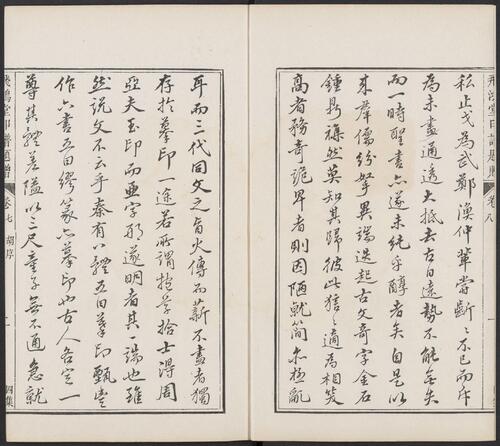 私止戈為武鄭漁仲輩嘗斷〻不已而斥
為未盡通透大抵去古日遠勢不能無失
而一時醒書亦遂未純乎醇者矣自是以
來羣儒紛拏異端迭起古文奇字金石
鍾鼎雜然莫知其歸彼此狺〻適為相笑
高者務奇詭卑者則因陋就簡尒極亂
耳而三代同文之旨火傳而薪不盡者獨
存於摹印一途若所謂拾土得周
亞夫玉印而亞字形遂明者其一端也雖
然說文不云乎秦有八體五曰摹印甄豐
作六書五曰繆篆亦摹印也古人各定一
尊其體差隘以三尺童子無不通急就
飛鴻堂印譜 卷七 胡序 一 四集